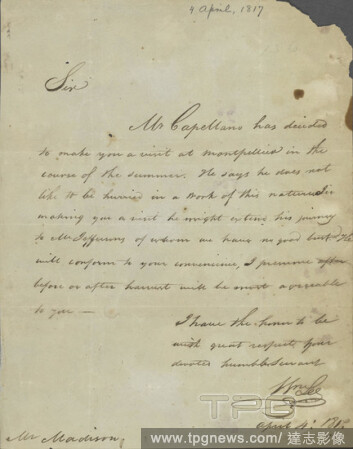 4 April, 1817
Sir
Mr Capellano has decided
to make you a visit at Montpellier in the
course of the summer. He says he does not
like to be hurried in a Book of this nature. In
making you a visit he might extend his journey
to Mr Jeffersons of whom we have no good bust. He
will conform to your convenience, I presume
before or after harvest will be most agreeable
to you —
I have the honor to be
with great respect your
devoted humble Servant
April 4th
Mr Madison
TPG
www.tpgnews.com/達志影像